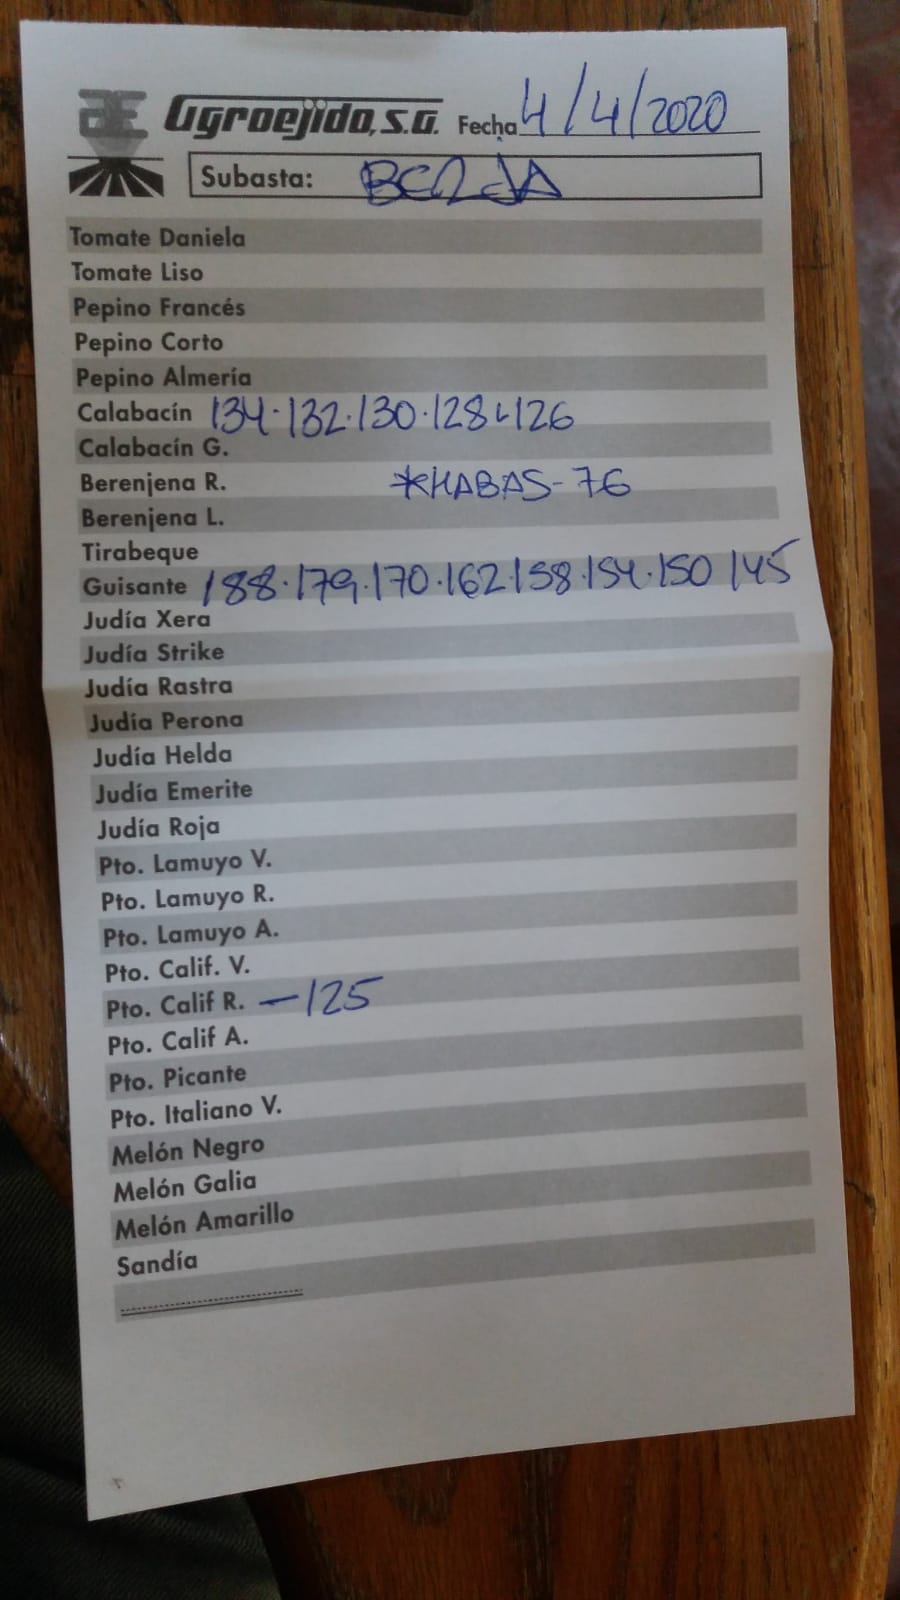 Agroejido, S.A. Fecha 4/4/2020
Subasta: BERJA
Tomate Daniela
Tomate Liso
Pepino Francés
Pepino Corto
Pepino Almería
Calabacín 134.132.130.128.126
Calabacín G.
Berenjena R. *HABAS-76
Berenjena L.
Tirabeque
Guisante 188.179.170.162.158.154.150 145
Judía Xera
Judía Strike
Judía Rastra
Judía Perona
Judía Helda
Judía Emerite
Judía Roja
Pto. Lamuyo V.
Pto. Lamuyo R.
Pto. Lamuyo A.
Pto. Calif. V.
Pto. Calif R. —125
Pto. Calif A.
Pto. Picante
Pto. Italiano V.
Melón Negro
Melón Galia
Melón Amarillo
Sandía